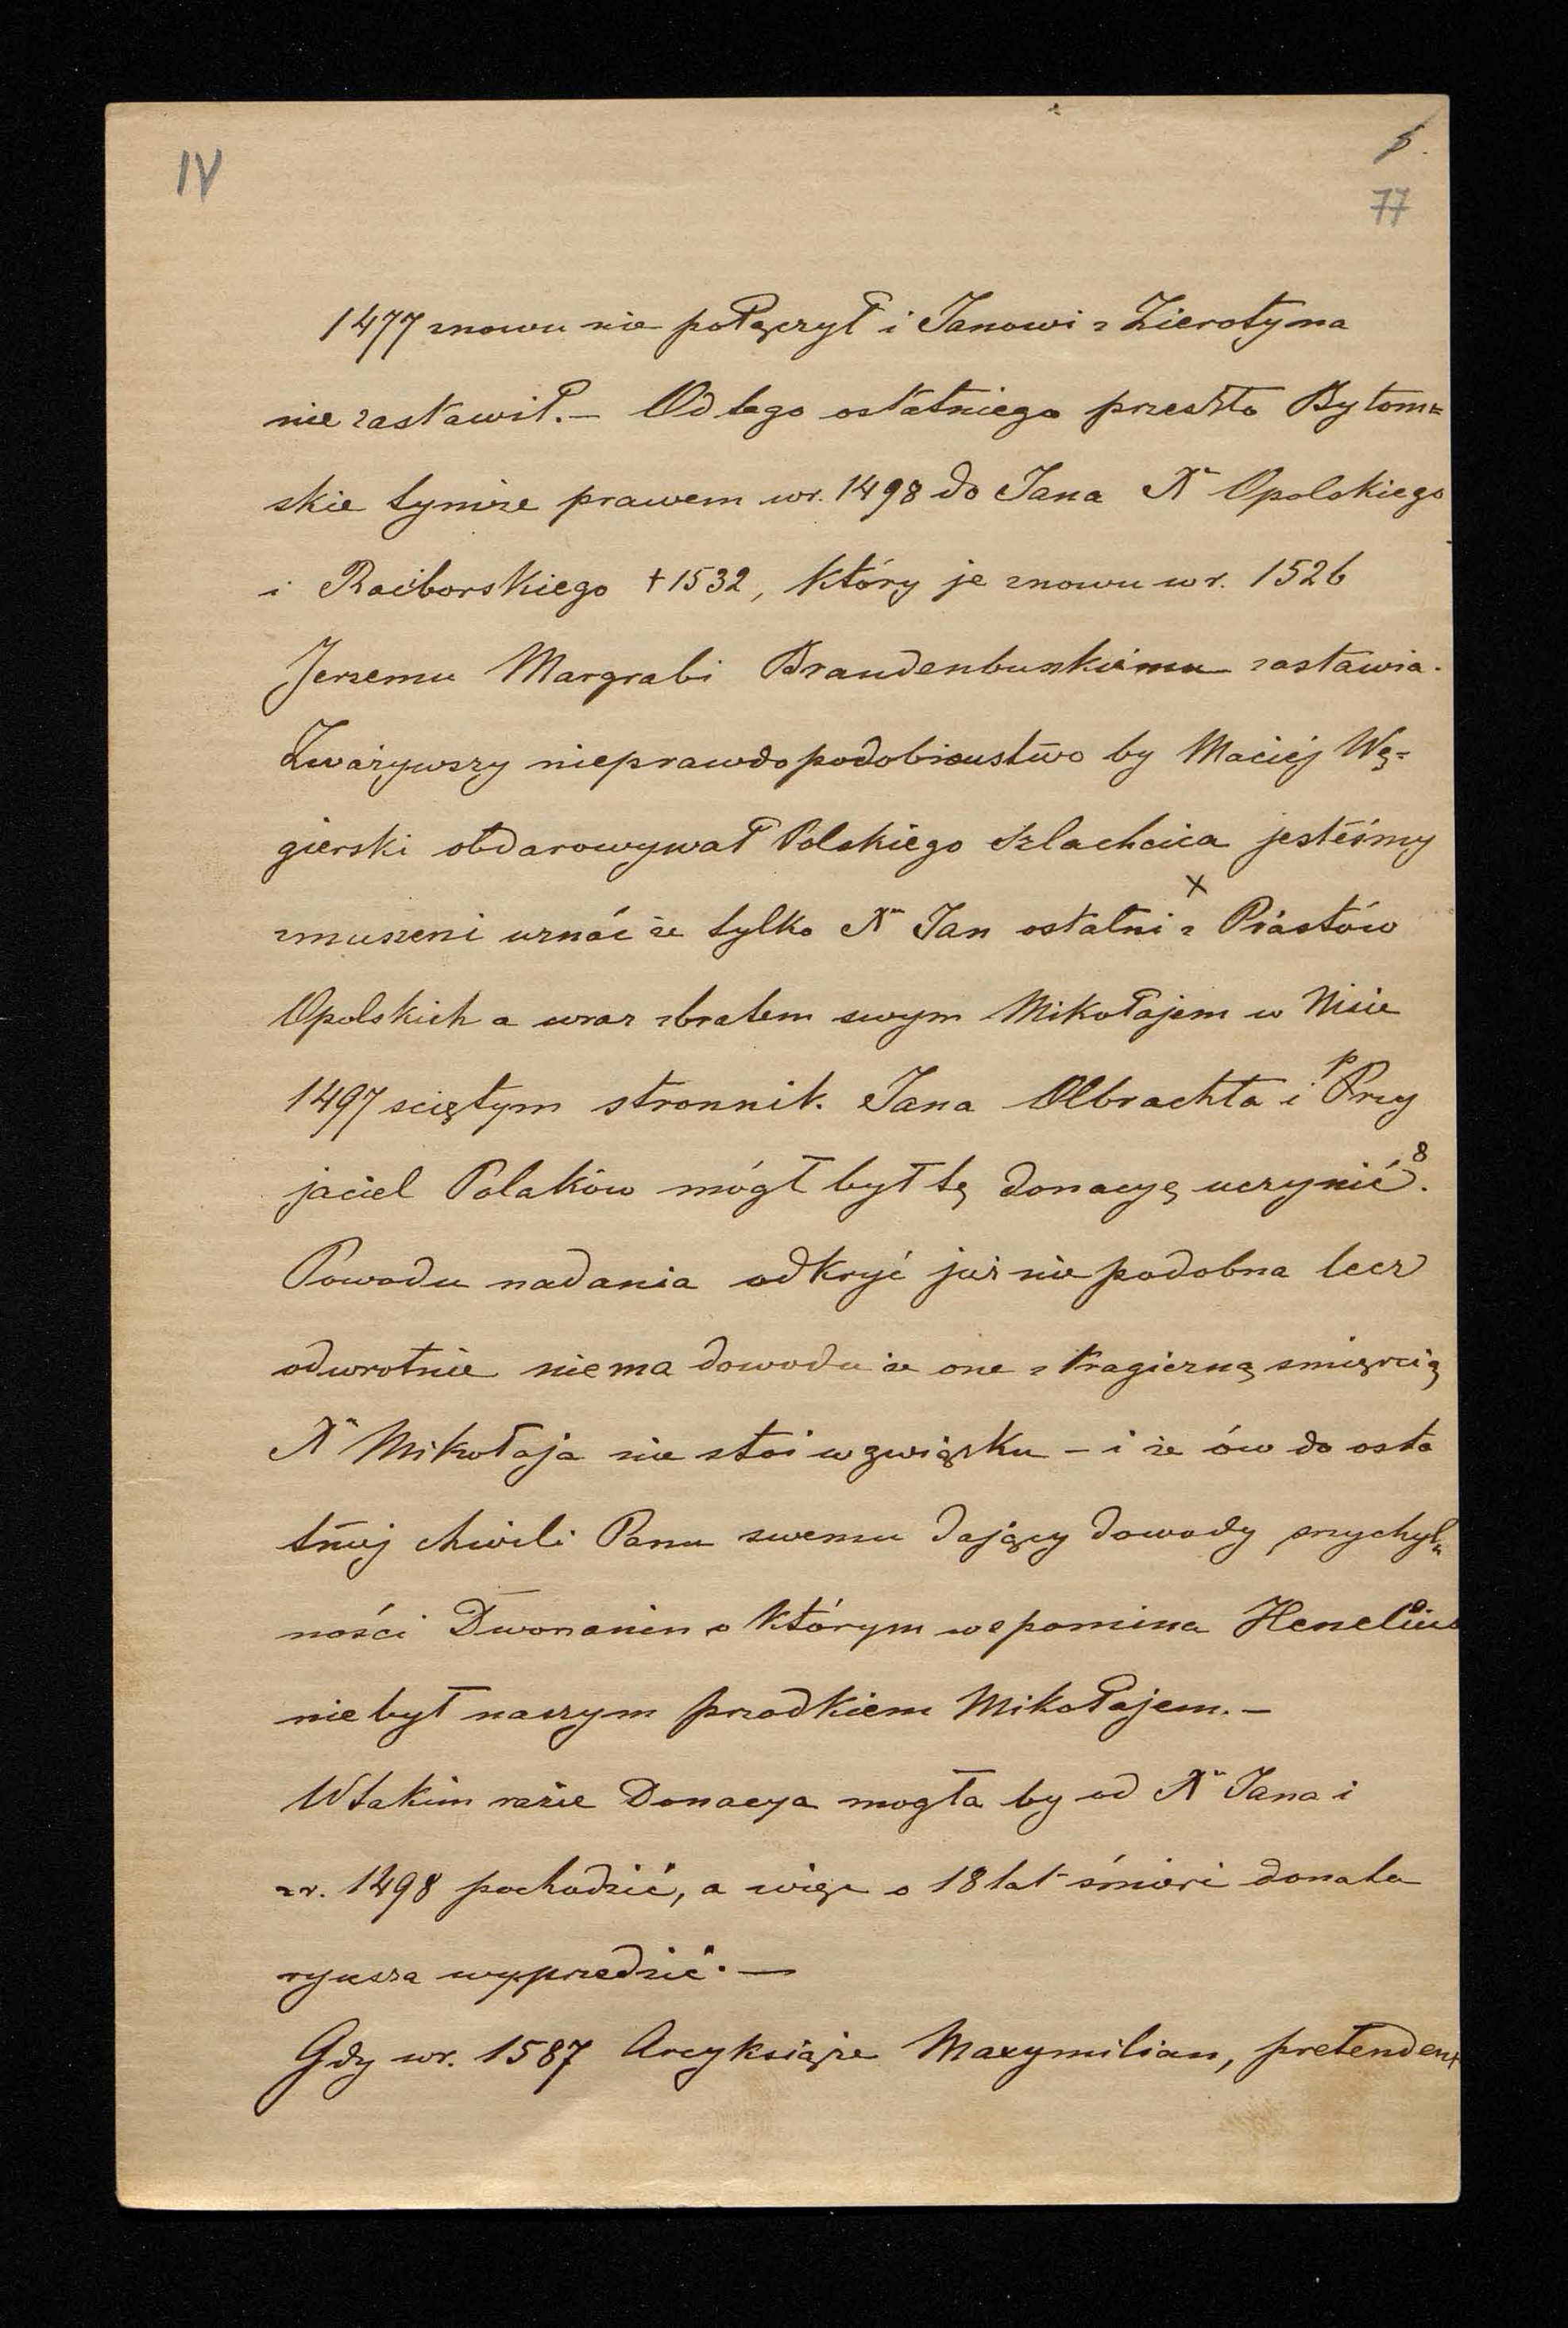 IV
5.
77
1477 znowu nie połączył i Janowi z Zierotyna
nie zastawił. – Od tego ostatniego przeszło Bytom=
skie tymże prawem w r. 1498 do Jana X<sup>a</sup> Opolskiego
i Raciborskiego † 1532, który je znowu w r. 1526
Jerzemu Margrabi Brandenburskiemu zastawia.
Zważywszy nieprawdopodobieństwo by Maciej Wę=
gierski obdarowywał Polskiego Szlachcica jesteśmy
x
zmuszeni uznać że tylko X<sup>ę</sup> Jan ostatni z Piastów
Opolskich a wraz z bratem swym Mikołajem w Nisie
1497 sciętym stronnik. Jana Olbrachta i Przy
jaciel Polaków mógł był tę donacyę uczynić<sup>8</sup>.
Powodu nadania odkryć już nie podobna lecz
odwrotnie niema dowodu że one z tragiczną smięrcią
X<sup>a</sup> Mikołaja nie stoi w związku – i że ów do osta
tniej chwili Panu swemu dający dowody przychyl„
ności Dworzanin o którym wspomina Henelius
nie był naszym przodkiem Mikołajem. –
W takim razie Donacya mogła by od X<sup>a</sup> Jana i
z r. 1498 pochodzić, a więc o 18 lat śmierć donata
ryusza wyprzedzić. —
Gdy w r. 1587 Arcyksiąże Maxymilian, pretendent